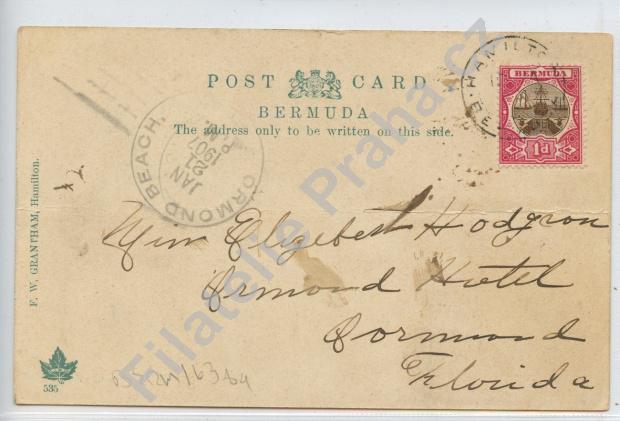 POST CARD
BERMUDA
The address only to be written on this side.
HAMILTON
BERMUDA
1d
ORMOND BEACH,
JAN
21
1907
P M
Miss Elizabeth Hodgson
Ormond Hotel
Oormond
Florida
F. W. GRANTHAM, Hamilton.
535
Filatelie Praha.cz